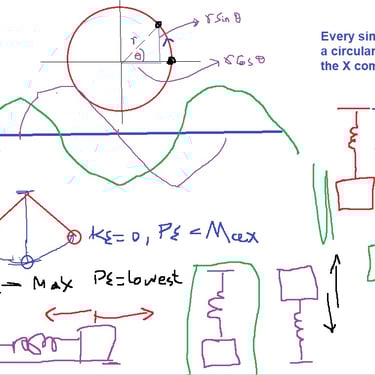 r sin θ
r
θ
r cos θ
Every sin
a circular
the X com
KE=0, PE = Max
→ Max PE=lowest